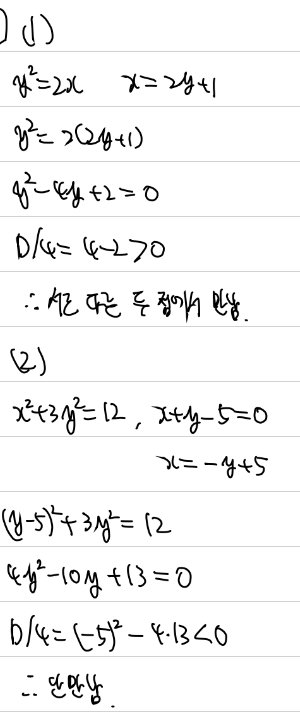 ) (1)
y²=2x x=2y+1
y²=2(2y+1)
y²-4y+2=0
D/4=4-2>0
∴ 서로 다른 두 점에서 만남.
(2)
x²+3y²=12, x+y-5=0
x=-y+5
(y-5)²+3y²=12
4y²-10y+13=0
D/4=(-5)²-4·13<0
∴ 안만남.